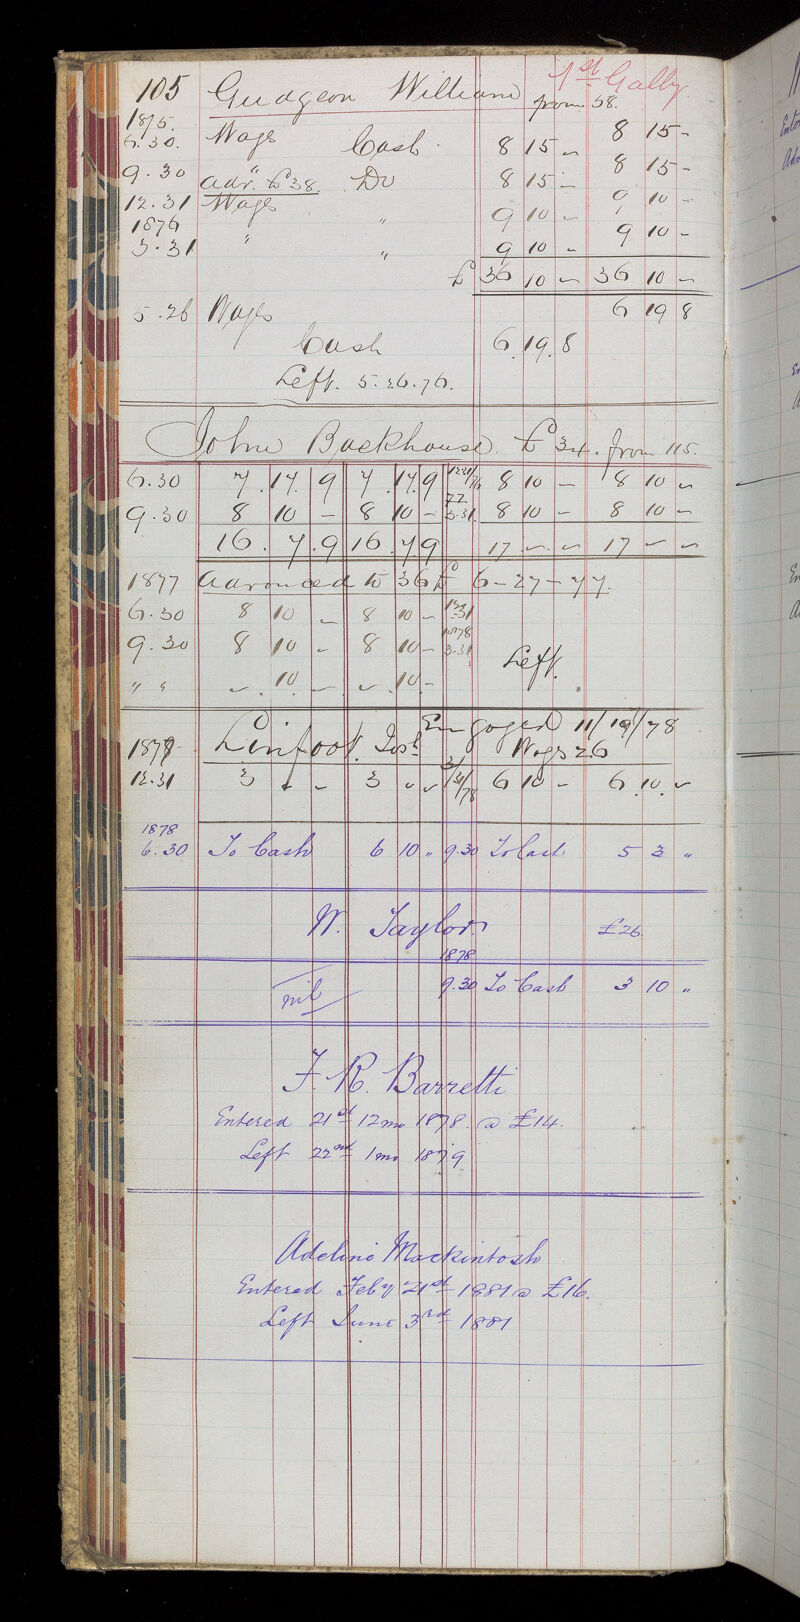 105 Gudgeon William from 58. 1st Galby.
1875.
6.30. Wages 8 15 -
Cash 8 15 -
9.30 " 8 15 -
Adv. to £38. Do 8 15 -
12.31 Wages " 9 10 - 9 10 -
1876
3.31 " " 9 10 - 9 10 -
£ 36 10 - 36 10 -
5.26 Wages 6 19 8
Cash 6. 19. 8
Left. 5.26.76.
John Backhouse £34. from 115.
6.30 7. 17. 9 7. 17. 9 12 31/76 8 10 - 8 10 -
9.30 8 10 - 8 10 - 77 3.31. 8 10 - 8 10 -
16. 7. 9 16. 7 9 17 - - 17 - -
1877 Advanced to 36£ 6-27-77.
6.30 8 10 - 8 10 - 12/31
9.30 8 10 - 8 10 - 1878 3.31 Left.
" " - 10 - - 10 -
Engaged 11/19/78
1877 Linfoot. Josh Wages 26
12.31 3 - - 3 - - 3/31/78 6 10 - 6. 10. -
1878
6.30 To Cash 6 10 " 9.30 To Cash 5 3 "
W. Taylor £26.
1878
nil 9.30 To Cash 3 10 "
F. R. Barretti
Entered 21st 12mo 1878. @ £14.
Left 22nd 1mo 1879
Adeline Mackintosh
Entered Feby 21st 1881 @ £16.
Left June 3rd 1881